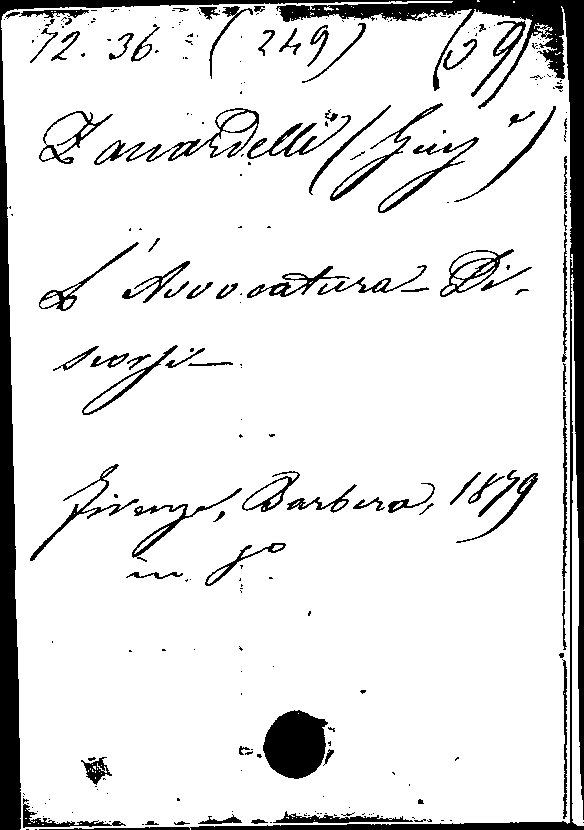 72. 36. (249) (59)
Zanardelli (Giuse)
L'Avvocatura - Di-
scorsi -
Firenze, Barbera, 1879
in 8º